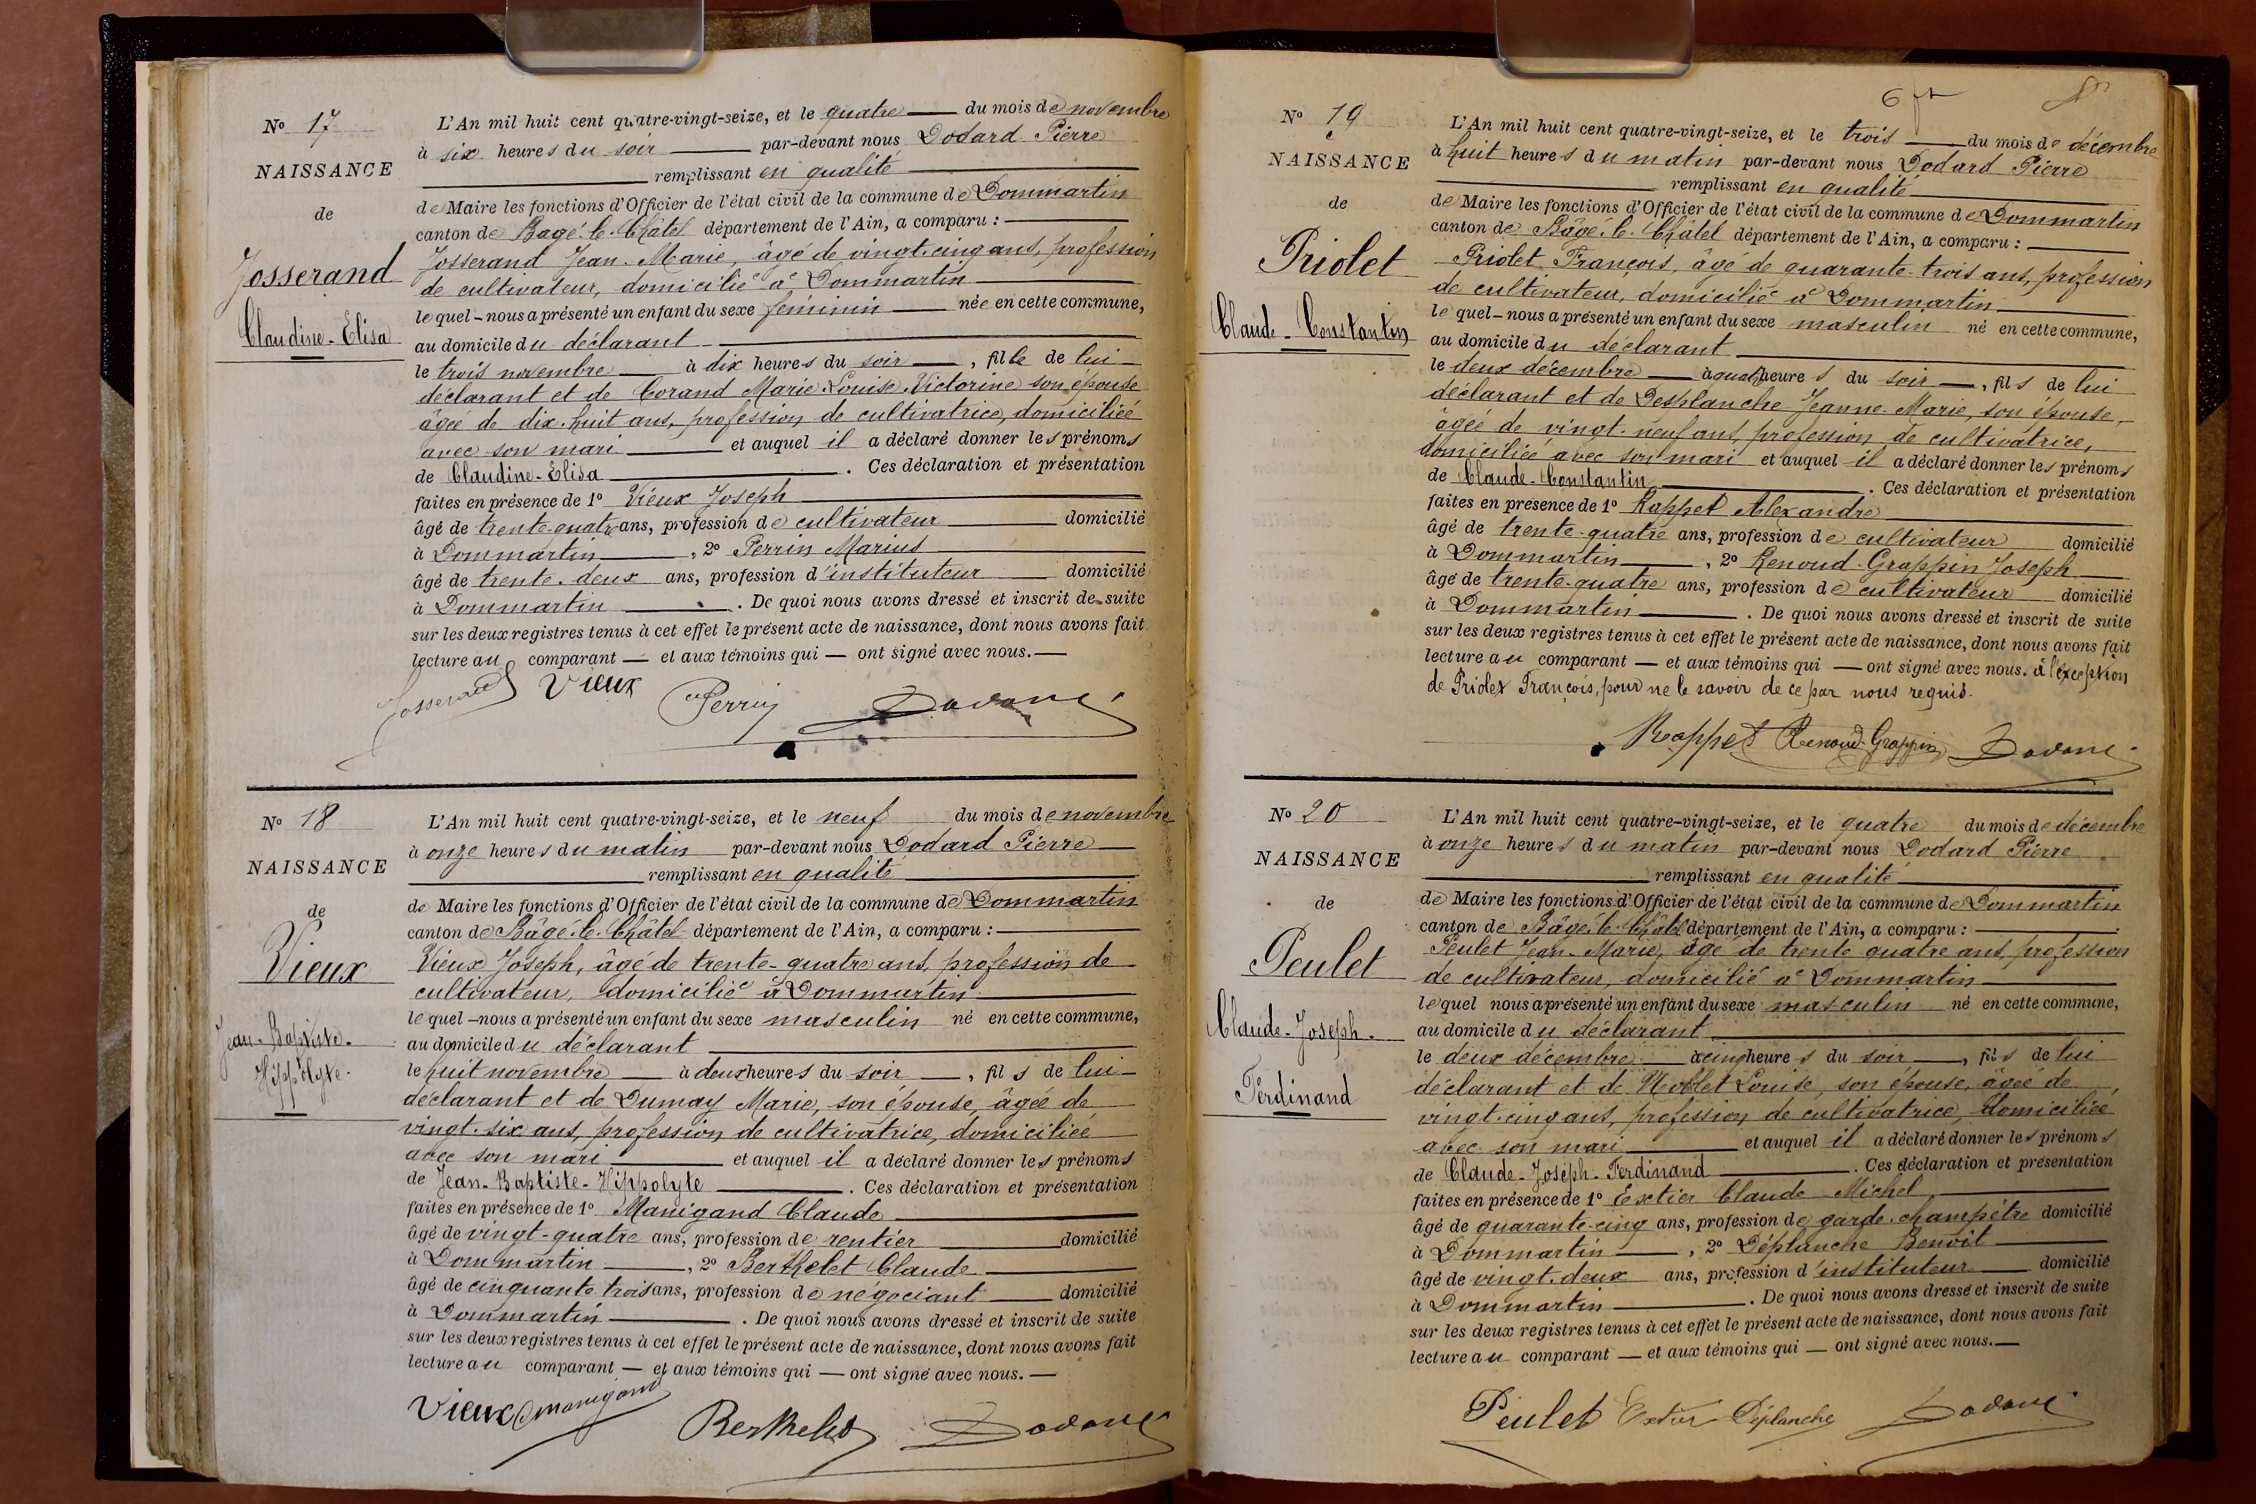 Nº 17
NAISSANCE
de
Josserand
Claudine-Elisa
L'An mil huit cent quatre-vingt-seize, et le quatre du mois de novembre
à six heures du soir par-devant nous Dodard Pierre
remplissant en qualité
de Maire les fonctions d'Officier de l'état civil de la commune de Dommartin
canton de Bagé-le-Châtel département de l'Ain, a comparu :
Josserand Jean-Marie, âgé de vingt-cinq ans, profession
de cultivateur, domicilié à Dommartin
lequel - nous a présenté un enfant du sexe féminin née en cette commune,
au domicile du déclarant
le trois novembre à dix heures du soir , fille de lui
déclarant et de Corand Marie-Louise-Victorine son épouse
âgée de dix-huit ans, profession de cultivatrice, domiciliée
avec son mari et auquel il a déclaré donner les prénoms
de Claudine-Elisa . Ces déclaration et présentation
faites en présence de 1º Vieux Joseph
âgé de trente-quatre ans, profession de cultivateur domicilié
à Dommartin , 2º Perrin Marius
âgé de trente-deux ans, profession d'instituteur domicilié
à Dommartin . De quoi nous avons dressé et inscrit de suite
sur les deux registres tenus à cet effet le présent acte de naissance, dont nous avons fait
lecture au comparant — et aux témoins qui — ont signé avec nous. —
Josserand Vieux Perrin Dodard
Nº 18
NAISSANCE
de
Vieux
Jean-Baptiste-
Hippolyte-
L'An mil huit cent quatre-vingt-seize, et le neuf du mois de novembre
à onze heures du matin par-devant nous Dodard Pierre
remplissant en qualité
de Maire les fonctions d'Officier de l'état civil de la commune de Dommartin
canton de Bâgé-le-Châtel département de l'Ain, a comparu :
Vieux Joseph, âgé de trente-quatre ans, profession de
cultivateur, domicilié à Dommartin
lequel - nous a présenté un enfant du sexe masculin né en cette commune,
au domicile du déclarant
le huit novembre à deux heures du soir , fils de lui
déclarant et de Dumay Marie, son épouse, âgée de
vingt-six ans, profession de cultivatrice, domiciliée
avec son mari et auquel il a déclaré donner les prénoms
de Jean-Baptiste-Hippolyte . Ces déclaration et présentation
faites en présence de 1º Manigand Claude
âgé de vingt-quatre ans, profession de rentier domicilié
à Dommartin , 2º Berthelet Claude
âgé de cinquante trois ans, profession de négociant domicilié
à Dommartin . De quoi nous avons dressé et inscrit de suite
sur les deux registres tenus à cet effet le présent acte de naissance, dont nous avons fait
lecture au comparant — et aux témoins qui — ont signé avec nous. —
Vieux Manigand Berthelet Dodard
Nº 19
NAISSANCE
de
Priolet
Claude-Constantin
L'An mil huit cent quatre-vingt-seize, et le trois du mois de décembre
à huit heures du matin par-devant nous Dodard Pierre
remplissant en qualité
de Maire les fonctions d'Officier de l'état civil de la commune de Dommartin
canton de Bâgé-le-Châtel département de l'Ain, a comparu :
Priolet François, âgé de quarante-trois ans, profession
de cultivateur, domicilié à Dommartin
lequel - nous a présenté un enfant du sexe masculin né en cette commune,
au domicile du déclarant
le deux décembre à quatre heures du soir , fils de lui
déclarant et de Desplanche Jeanne-Marie, son épouse,
âgée de vingt-neuf ans, profession de cultivatrice,
domiciliée avec son mari et auquel il a déclaré donner les prénoms
de Claude-Constantin . Ces déclaration et présentation
faites en présence de 1º Rappet Alexandre
âgé de trente-quatre ans, profession de cultivateur domicilié
à Dommartin , 2º Renoud-Grappin Joseph
âgé de trente-quatre ans, profession de cultivateur domicilié
à Dommartin . De quoi nous avons dressé et inscrit de suite
sur les deux registres tenus à cet effet le présent acte de naissance, dont nous avons fait
lecture au comparant — et aux témoins qui — ont signé avec nous. à l'exception
de Priolet François, pour ne le savoir de ce par nous requis.
Rappet Renoud-Grappin Dodard
Nº 20
NAISSANCE
de
Peulet
Claude-Joseph-
Ferdinand
L'An mil huit cent quatre-vingt-seize, et le quatre du mois de décembre
à onze heures du matin par-devant nous Dodard Pierre
remplissant en qualité
de Maire les fonctions d'Officier de l'état civil de la commune de Dommartin
canton de Bâgé-le-Châtel département de l'Ain, a comparu :
Peulet Jean-Marie, âgé de trente quatre ans, profession
de cultivateur, domicilié à Dommartin
lequel nous a présenté un enfant du sexe masculin né en cette commune,
au domicile du déclarant
le deux décembre à cinq heures du soir , fils de lui
déclarant et de Noblet Louise, son épouse, âgée de
vingt-cinq ans, profession de cultivatrice, domiciliée
avec son mari et auquel il a déclaré donner les prénoms
de Claude-Joseph-Ferdinand . Ces déclaration et présentation
faites en présence de 1º Extier Claude-Michel
âgé de quarante-cinq ans, profession de garde-champêtre domicilié
à Dommartin , 2º Déplanche Benoît
âgé de vingt-deux ans, profession d'instituteur domicilié
à Dommartin . De quoi nous avons dressé et inscrit de suite
sur les deux registres tenus à cet effet le présent acte de naissance, dont nous avons fait
lecture au comparant — et aux témoins qui — ont signé avec nous. —
Peulet Extier Déplanche Dodard